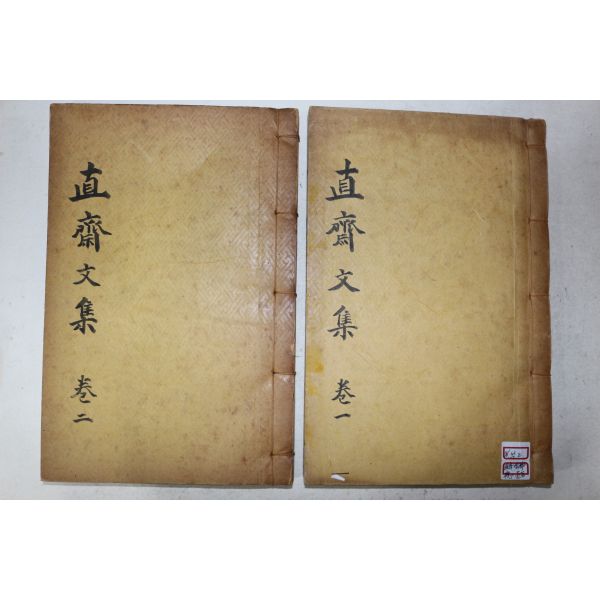 直齋文集
卷一
直齋文集
卷二